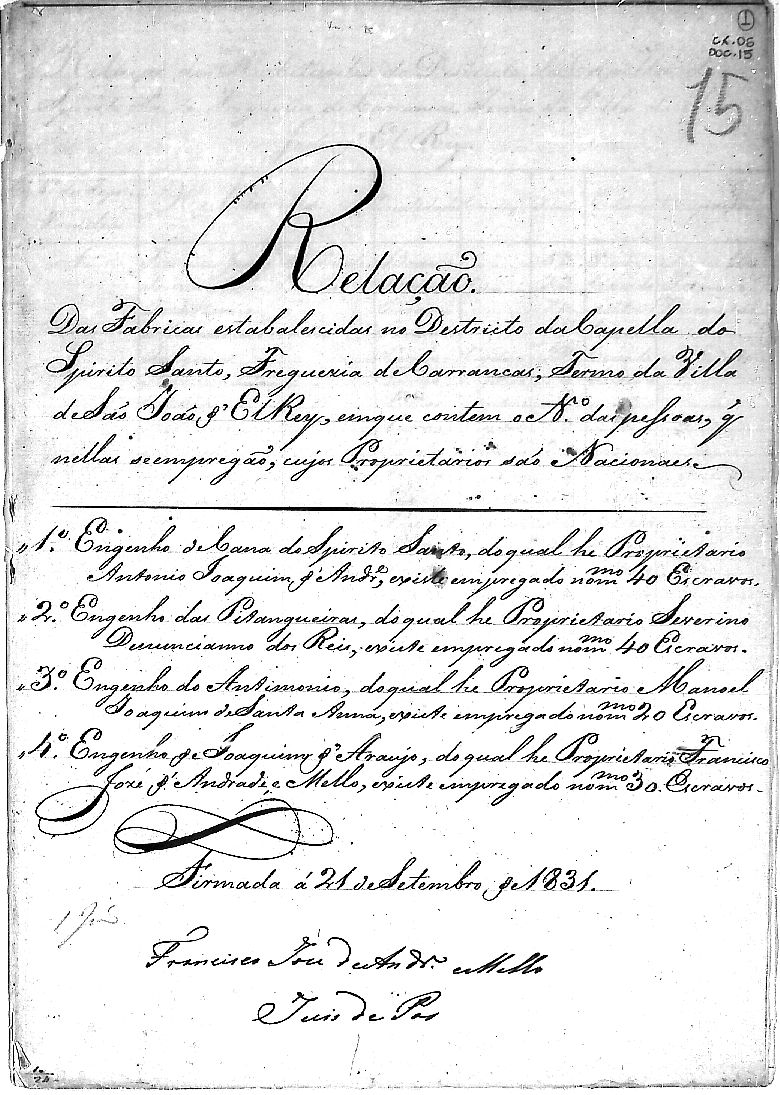 1
CX.06
DOC.15
15
Relação.
Das Fabricas estabalescidas no Destricto da Capella do
Spirito Santo, Freguezia de Carrancas, Termo da Villa
de São João d' ElRey, emque contem o N.º das pessoas, q
nellas se empregão, cujos Proprietarios são Nacionaes.
"1.º Engenho de Cana do Spirito Santo, do qual he Proprietario
Antonio Joaquim d' Andr.e, existe empregado no m.mo 40 Escravos.
"2.º Engenho das Pitangueiras, do qual he Proprietario Severino
Denuncianno dos Reis, existe empregado no m.mo 40 Escravos.
"3.º Engenho do Antimonio, do qual he Proprietario Manoel
Joaquim de Santa Anna, existe empregado no m.mo 20 Escravos.
"4.º Engenho de Joaquim d' Araujo, do qual he Proprietario Francisco
José d' Andrade, e Mello, existe empregado no m.mo 30 Escravos.
Firmada á 21 de Setembro, de 1831.
Francisco José de Andr.e e Mello
Juis de Pas